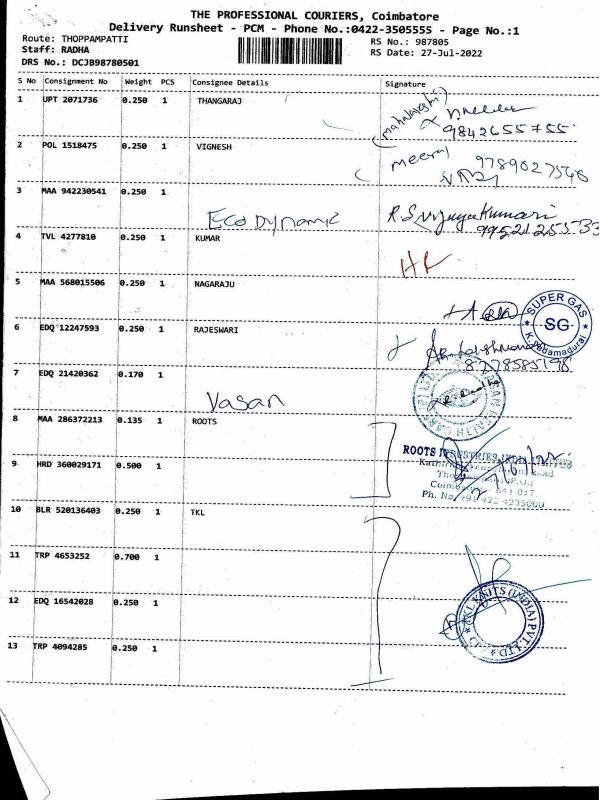 THE PROFESSIONAL COURIERS, Coimbatore
Delivery Runsheet - PCM - Phone No.:0422-3505555 - Page No.:1
Route: THOPPAMPATTI
RS No.: 987805
Staff: RADHA
RS Date: 27-Jul-2022
DRS No.: DCJB98780501
S No Consignment No Weight PCS Consignee Details Signature
1 UPT 2071736 0.250 1 THANGARAJ
(mahalakshmi)
9842655755
2 POL 1518475 0.250 1 VIGNESH
meeraj
9789027546
3 MAA 942230541 0.250 1
Eco Dynamic
R.S Vijayakumari
9952125533
4 TVL 4277810 0.250 1 KUMAR
5 MAA 568015506 0.250 1 NAGARAJU
SUPER GAS
SG
6 EDQ 12247593 0.250 1 RAJESWARI
8778585198
7 EDQ 21420362 0.170 1
Vasan
HEALTH CARE
8 MAA 286372213 0.135 1 ROOTS
ROOTS INDUSTRIES INDIA
9 HRD 360029171 0.500 1
Ph. No. +91 422 4235000
10 BLR 520136403 0.250 1 TKL
11 TRP 4653252 0.700 1
12 EDQ 16542028 0.250 1
TKL KNITS (INDIA) PVT. LTD
13 TRP 4094285 0.250 1